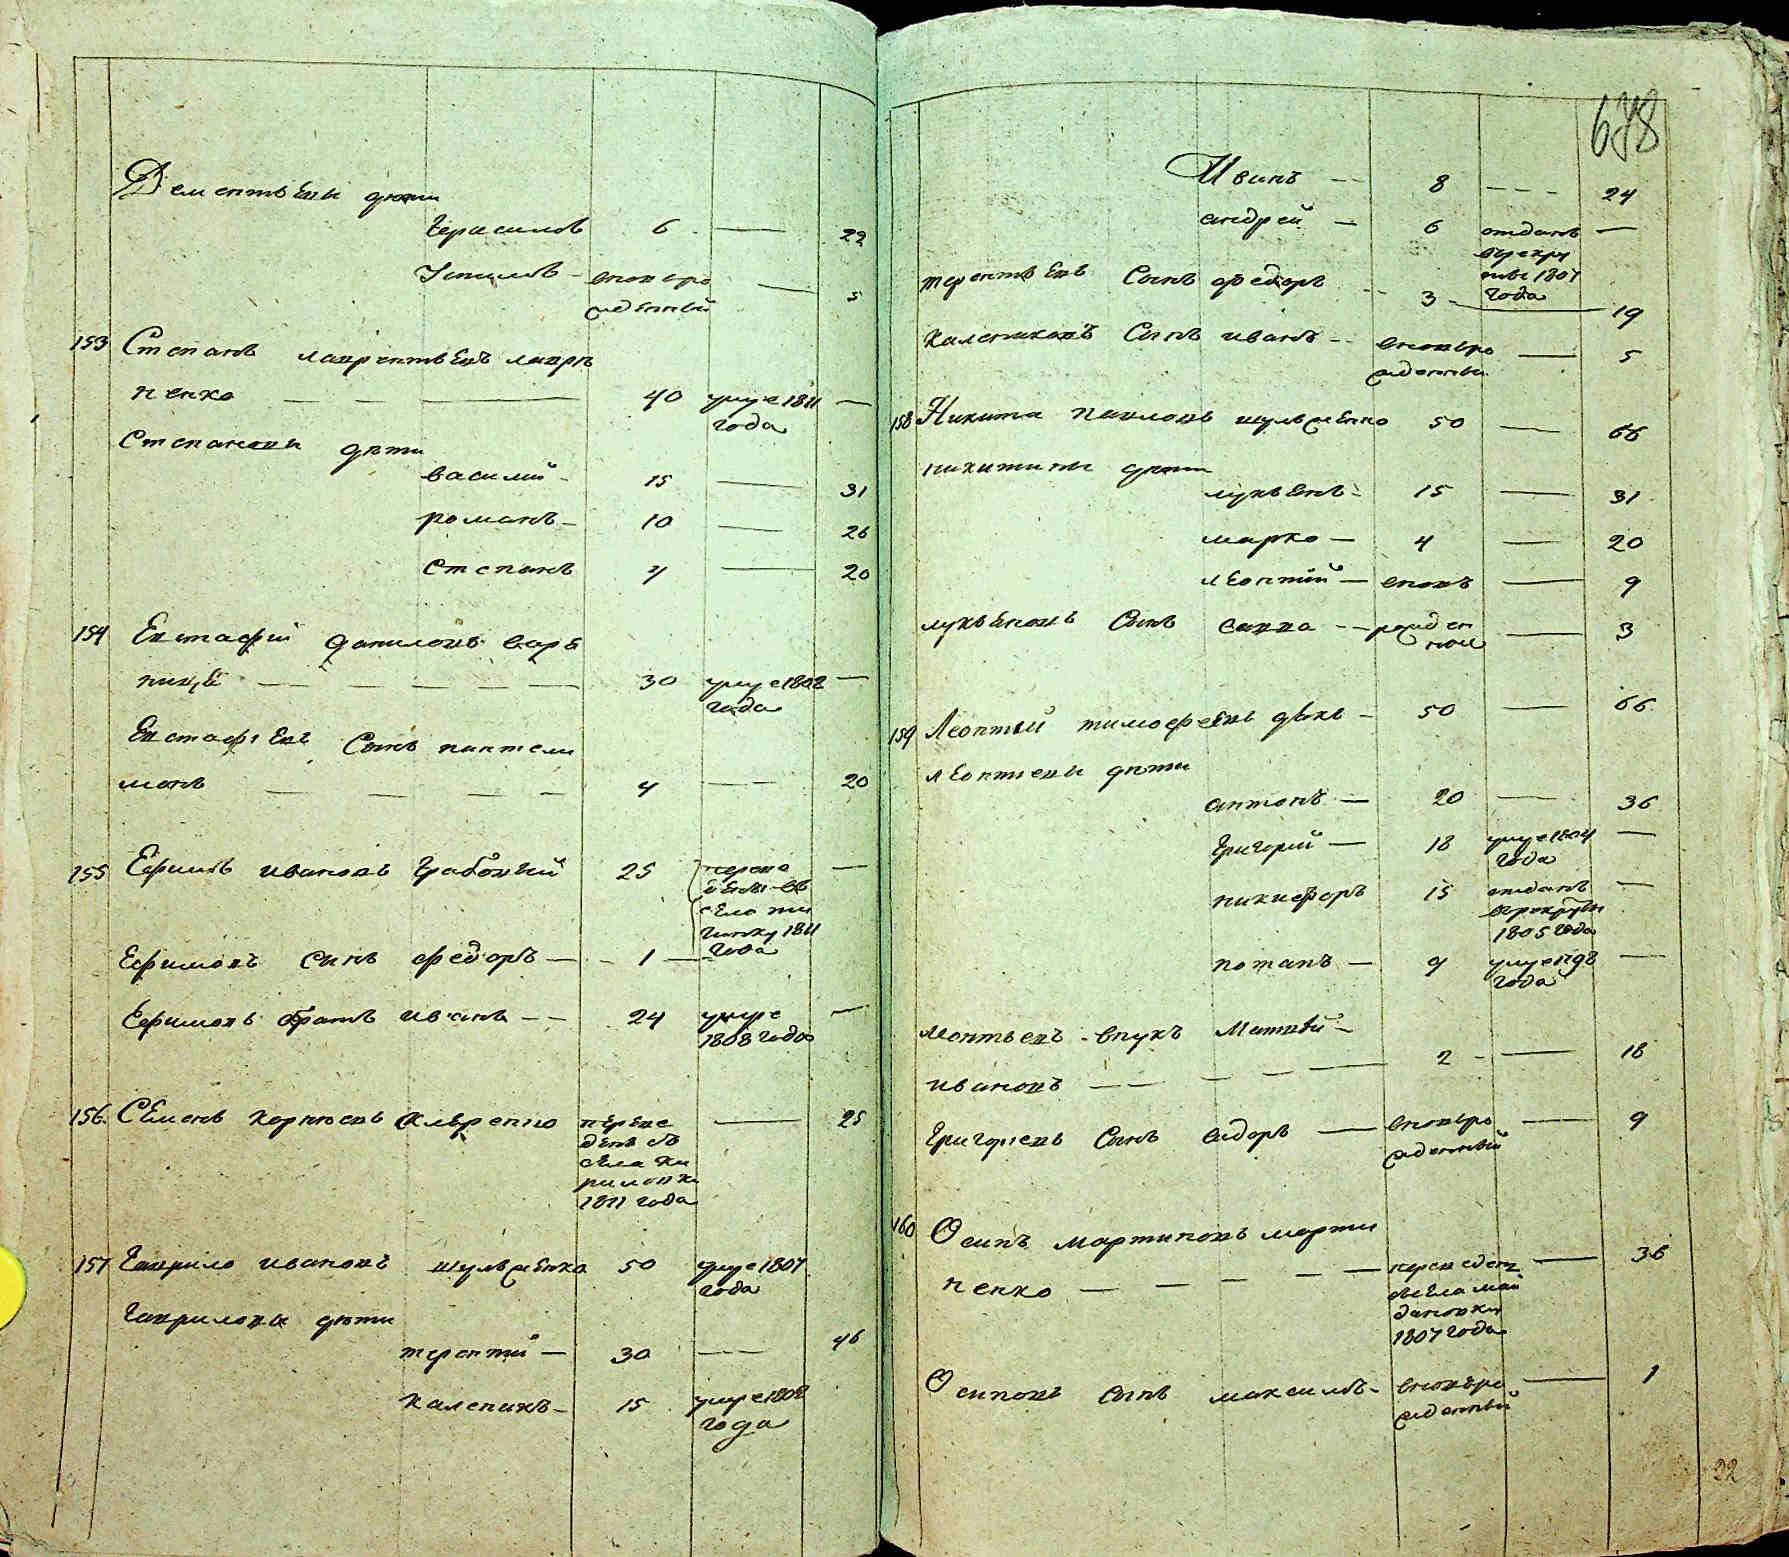 Дементьевы дети
Герасимъ 6 — 22
вновьро
жденный — 5
153 Степанъ лаврентьевъ лавре
ненко — 40 умре 1811 —
года
Степановы дети
василий - 15 — 31
романъ - 10 — 26
степанъ 4 — 20
154 Евстафий даниловъ
30 умре 1802 —
года
Евстафьевъ Сынъ пантели
монъ — 4 — 20
155 Ефимъ ивановъ 25 —
1811
года
Ефимовъ сынъ федоръ — 1 —
Ефимовъ братъ иванъ — 24 умре —
1808 года
156. Семенъ переве — 25
денъ съ
села ки
риловки
1811 года
157 Гаврило ивановъ шульженко 50 умре 1807
года
Гавриловы дети
терентий — 30 — 46
каленикъ - 15 умре 1802
года
678
Иванъ — 8 — 24
андрей — 6 отданъ —
врекру
ты 1807
года
терентьевъ Сынъ федоръ — 3 — 19
калениковъ Сынъ иванъ — вновьро — 5
жденны
158 Никита павловъ шульженко 50 — 66
никитины дети
лукьянъ - 15 — 31
марко — 4 — 20
леонтий — вновь — 9
лукьяновъ Сынъ савва — рожден — 3
ной
159 Леонтий тимофеевъ — 50 — 66
леонтиевы дети
антонъ — 20 — 36
Григорий — 18 умре 1804 —
года
никифоръ 15 отданъ —
врекруты
1805 года
потапъ — 9 умре 1798 —
года
леонтьевъ внукъ Матвей —
ивановъ — 2 - — 18
Григорьевъ Сынъ сидоръ — вновьро — 9
жденный
160 Осипъ мартиновъ марти
ненко — переведенъ — 36
съ села май
дановки
1807 года
Осиповъ сынъ максимъ - вновьро — 1
жденный
22